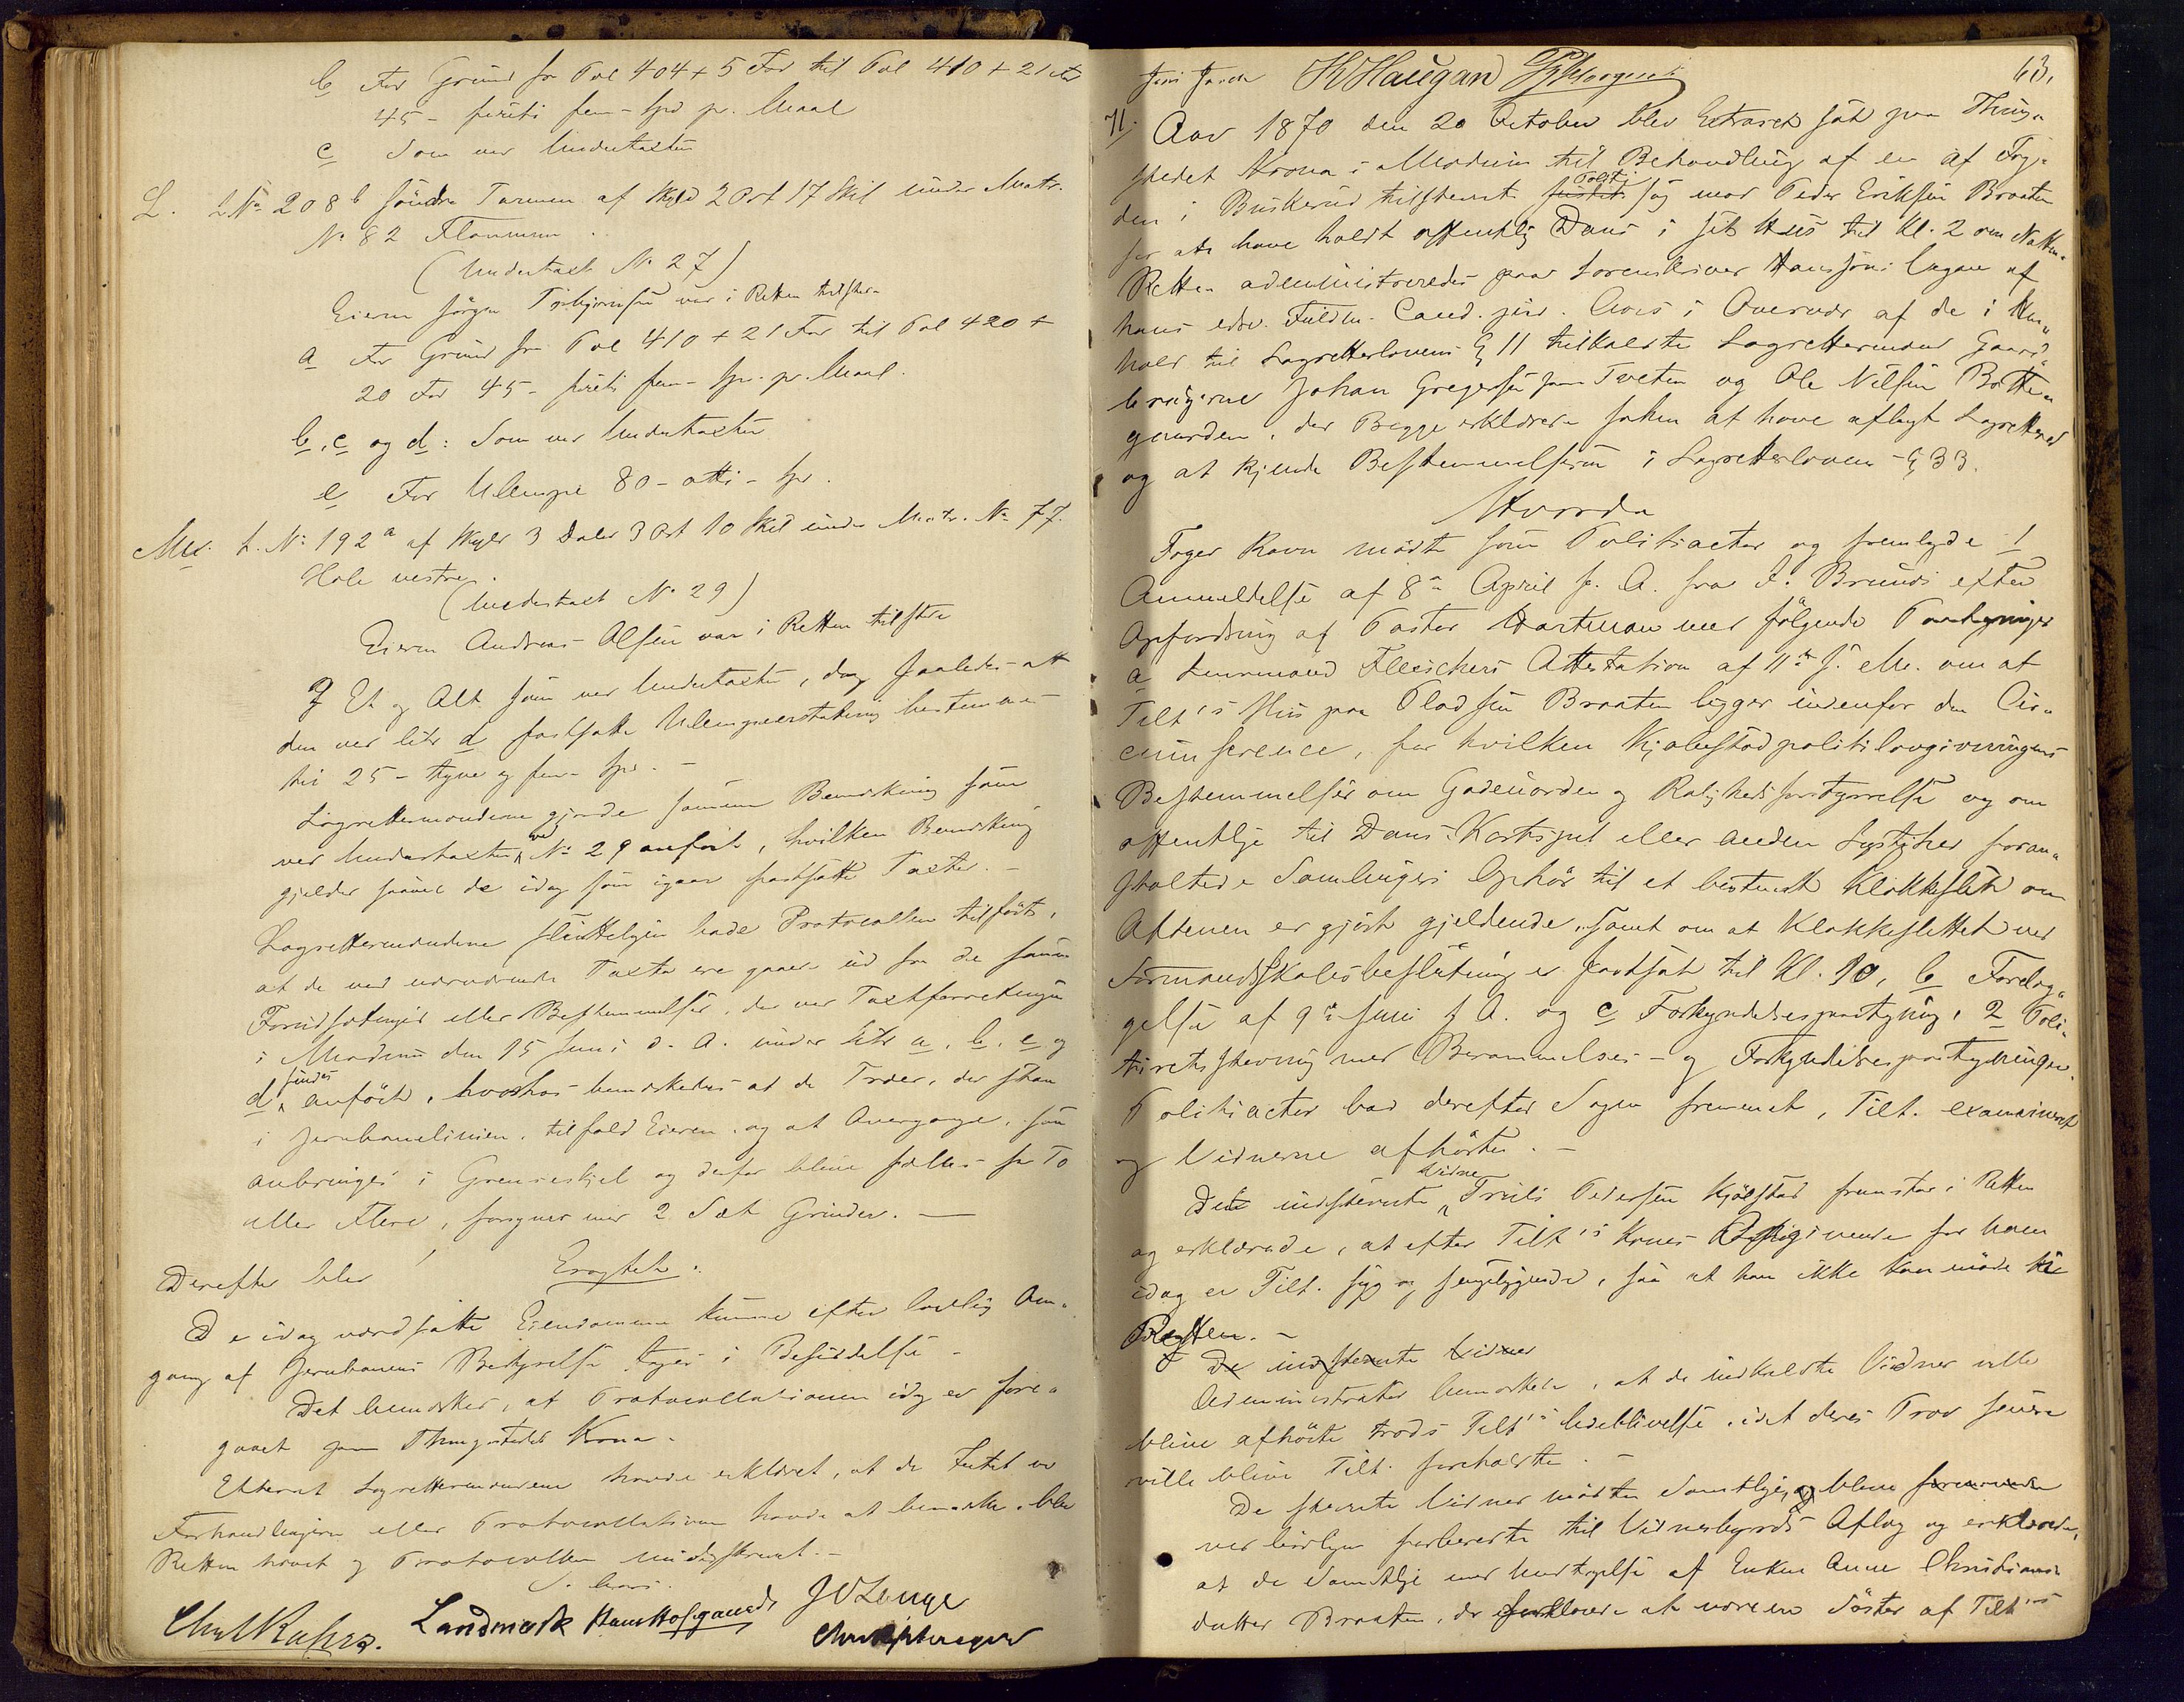 b For Grund fra Pæl 404 + 5 Fod til Pæl 410 + 21 Fod
45 - firti fem - Spd pr. Maal
c Som ved Undertaxten
L. L No 208 b søndre Tarmen af Skyld 2 Ort 17 Skil under Matr.
No 82
(Undertaxt No 27)
Eieren Jørgen Torbjørnsen var i Retten tilstede
a For Grund fra Pæl 410 + 21 Fod til Pæl 420 +
20 Fod 45 - firti fem - Spd. pr. Maal.
b, c og d: Som ved Undertaxten
e For Ulempe 80 - otti - Spd.
L. No 192 a af Skyld 3 Daler 3 Ort 10 Skil under Matr. No 77.
Hole vestre.
(Undertaxt No 29)
Eieren Andreas Olsen var i Retten tilstede
Et og Alt som ved Undertaxten, dog saaledes at
den ved litr d fastsatte Ulempeerstatning bestemmes
til 25 - tyve og fem - Spd. -
Lagrettemændene gjorde samme Bemærkning som
ved Undertaxten ved No 29 anført, hvilken Bemærkning
gjelder saavel de idag som igaar fastsatte Taxter. -
Lagrettemændene sluttelig bad Protocollen tilført,
at de ved nærværende Taxt ere gaaet ud fra de samme
Forudsætninger eller Bestemmelser, der ved Taxtforretningen
i Modum den 15 Juni d. A. under Litr a, b, c og
d findes anført, hvorhos bemærkedes at de Træer, der staar
i Jernbanelinien, tilfald Eieren, og at Overgange, som
anbringes i Grændseskjel og derfor blive fælles for To
eller Flere, forsynes med 2 Sæt Grinder. -
Derefter blev
Eragtet.
De idag værdsatte Eiendomme kunne efter lovlig Om-
gang af Jernbanens Bestyrelse tages i Besiddelse -
Det bemærkes, at Protocollationen idag er fore-
gaaet paa Thingstedet Krona -
Efterat Lagrettemændene havde erklæret, at de Intet ved
Forhandlingerne eller Protocollationen havde at bemærke, blev
Retten hævet og Protocollen underskrevet. -
Landmark Hans Hofgaard J V Lange

H Haugan
63.
71. Aar 1870 den 20 October blev Extraret sat paa Thing-
stedet Krona i Modum til Behandling af en af Fog-
den i Buskerud tilstevnt Justits Politi Sag mod Peder Eriksen Braaten
for at have holdt offentlig Dans i sit Hus til Kl. 2 om Natten.
Retten administreredes paa Sorenskriver Hansons Vegne af
hans edsv. Fuldm. Cand. jur. i Overvær af de i Hen-
hold til Lagretteloven § 11 tilkaldte Lagrettemænd Gaard-
brugerne Johan Gregersen Tveten og Ole Nilsen Botte-
gaarden, der Begge erklærede forhen at have aflagt Lagretteed
og at kjende Bestemmelserne i Lagretteloven § 33.
Hvorda
Foged Ravn mødte som Politiactor og fremlagde 1
Anmeldelse af 8de April f. A. fra I. Bruns efter
Opfordring af Pastor Hartman med følgende Paategninger
a Lensmand Fleischers Attestation af 11te s. M. om at
Tilt's Hus paa Pladsen Braaten ligger indenfor den Cir-
cumference, for hvilken Kjøbstadpolitilovgivningens
Bestemmelser om Gadeuorden og Rolighedsforstyrrelse og om
offentlige til Dans, Kortspil eller anden Lystighed foran-
staltede Samlingers Ophør til et bestemt Klokkeslet om
Aftenen er gjort gjeldende, samt om at Klokkeslettet ved
Formandskabsbeslutning er fastsat til Kl. 10, b Forelæg-
gelse af 9de Juni f A. og c Forkyndelsespaategning, 2 Poli-
tiretsstevning med Berammelses- og Forkyndelsespaategninger.
Politiactor bad derefter Sagen fremmet, Tilt. examineret
og Vidnerne afhørte. -
Det indstevnte Vidne Truls Pedersen Kjølstad fremstod i Retten
og erklærede, at efter Tilt's Kones Opgivende for ham
idag er Tilt. syg og sengeliggende, saa at han ikke kan møde til
Retten. -
De indstevnte Vidner
Administrator bemærkede, at de indkaldte Vidner ville
blive afhørte trods Tilt's Udeblivelse, idet deres Prov senere
ville blive Tilt. foreholdte. -
De stevnte Vidner mødte samtlige, og bleve formanede
ved forberedte til Vidnesbyrds Aflæg og erklærede,
at de samtlige med Undtagelse af Enken Anne Christians-
datter Braaten, der forklarede at være en Søster af Tilt's